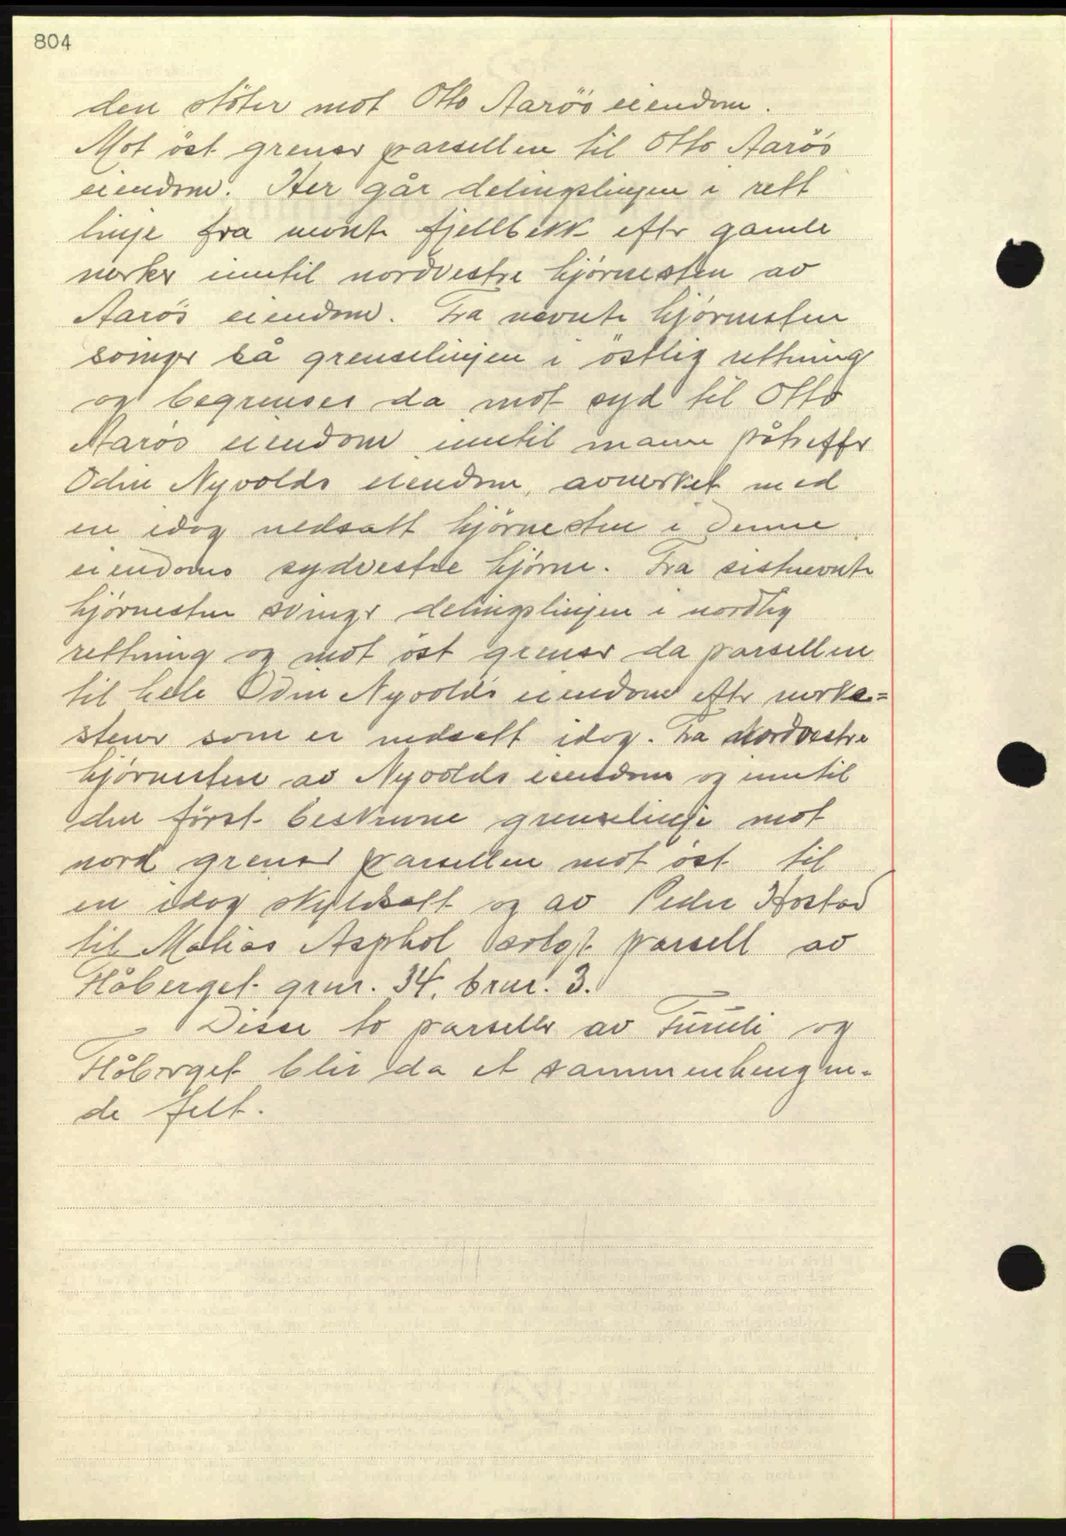 804
den støter mot Otto Aarøs eiendom.
Mot øst grenser parsellen til Otto Aarøs
eiendom. Her går delingslinjen i rett
linje fra nevnte fjellbekk efter gamle
merker inntil nordvestre hjørnesten av
Aarøs eiendom. Fra nevnte hjørnesten
svinger så grenselinjen i östlig rettning
og begrenses da mot syd til Otto
Aarøs eiendom inntil mann påtreffer
Odin Nyvolds eiendom, avmerket med
en idag nedsatt hjørnesten i denne
eiendoms sydvestre hjørne. Fra sistnevnte
hjørnesten svinger delingslinjen i nordlig
rettning og mot øst grenser da parsellen
til hele Odin Nyvolds eiendom efter merke=
stener som er nedsatt idag. Fra Nordvestre
hjørnesten av Nyvolds eiendom og inntil
den først beskrevne grenselinje mot
nord grenser parsellen mot øst til
en idag skyldsatt og av Peder Hostad
til Matias Asphol solgt parsell av
Håberget grnr. 34, brnr. 3.
Disse to parseller av Furuli og
Håberget blir da et sammenhengen-
de felt.